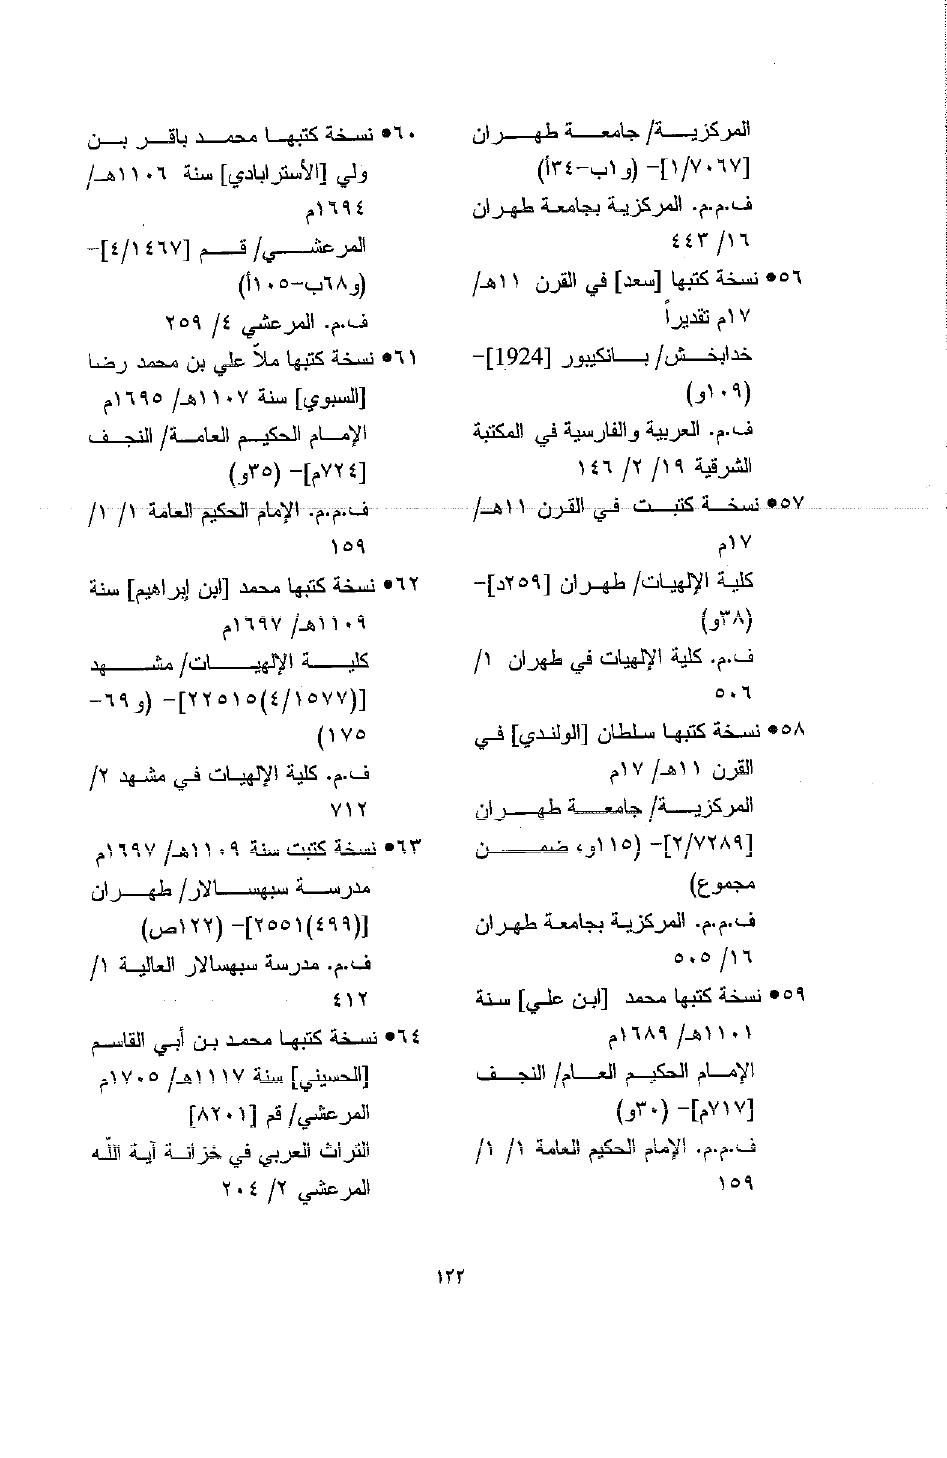 المركزية/ جامعة طهران
[١/٧٠٦٧]- (و١ب-٣٤أ)
ف.م.م. المركزية بجامعة طهران
١٦/ ٤٤٣
٥٦● نسخة كتبها [سعد] في القرن ١١هـ/
١٧م تقديراً
خدابخش/ بانكيبور [1924]-
(١٠٩و)
ف.م. العربية والفارسية في المكتبة
الشرقية ١٩/ ٢/ ١٤٦
٥٧● نسخة كتبت في القرن ١١هـ/
١٧م
كلية الإلهيات/ طهران [٢٥٩د]-
(٣٨و)
ف.م. كلية الإلهيات في طهران ١/
٥٠٦
٥٨● نسخة كتبها سلطان [الولندي] في
القرن ١١هـ/ ١٧م
المركزية/ جامعة طهران
[٢/٧٢٨٩]- (١١٥و، ضمن
مجموع)
ف.م.م. المركزية بجامعة طهران
١٦/ ٥٠٥
٥٩● نسخة كتبها محمد [ابن علي] سنة
١١٠١هـ/ ١٦٨٩م
الإمام الحكيم العام/ النجف
[٧١٧م]- (٣٠و)
ف.م.م. الإمام الحكيم العامة ١/ ١/
١٥٩
٦٠● نسخة كتبها محمد باقر بن
ولي [الأسترابادي] سنة ١١٠٦هـ/
١٦٩٤م
المرعشي/ قم [٤/١٤٦٧]-
(و٦٨ب-١٠٥أ)
ف.م. المرعشي ٤/ ٢٥٩
٦١● نسخة كتبها ملاّ علي بن محمد رضا
[السبوي] سنة ١١٠٧هـ/ ١٦٩٥م
الإمام الحكيم العامة/ النجف
[٧٢٤م]- (٣٥و)
ف.م.م. الإمام الحكيم العامة ١/ ١/
١٥٩
٦٢● نسخة كتبها محمد [ابن إبراهيم] سنة
١١٠٩هـ/ ١٦٩٧م
كلية الإلهيات/ مشهد
[(٤/١٥٧٧)٢٢٥١٥]- (و٦٩-
١٧٥)
ف.م. كلية الإلهيات في مشهد ٢/
٧١٢
٦٣● نسخة كتبت سنة ١١٠٩هـ/ ١٦٩٧م
مدرسة سبهسالار/ طهران
[(٤٩٩)٢٥٥١]- (١٢٢ص)
ف.م. مدرسة سبهسالار العالية ١/
٤١٢
٦٤● نسخة كتبها محمد بن أبي القاسم
[الحسيني] سنة ١١١٧هـ/ ١٧٠٥م
المرعشي/ قم [٨٢٠١]
التراث العربي في خزانة آية اللّه
المرعشي ٢/ ٢٠٤
١٢٢